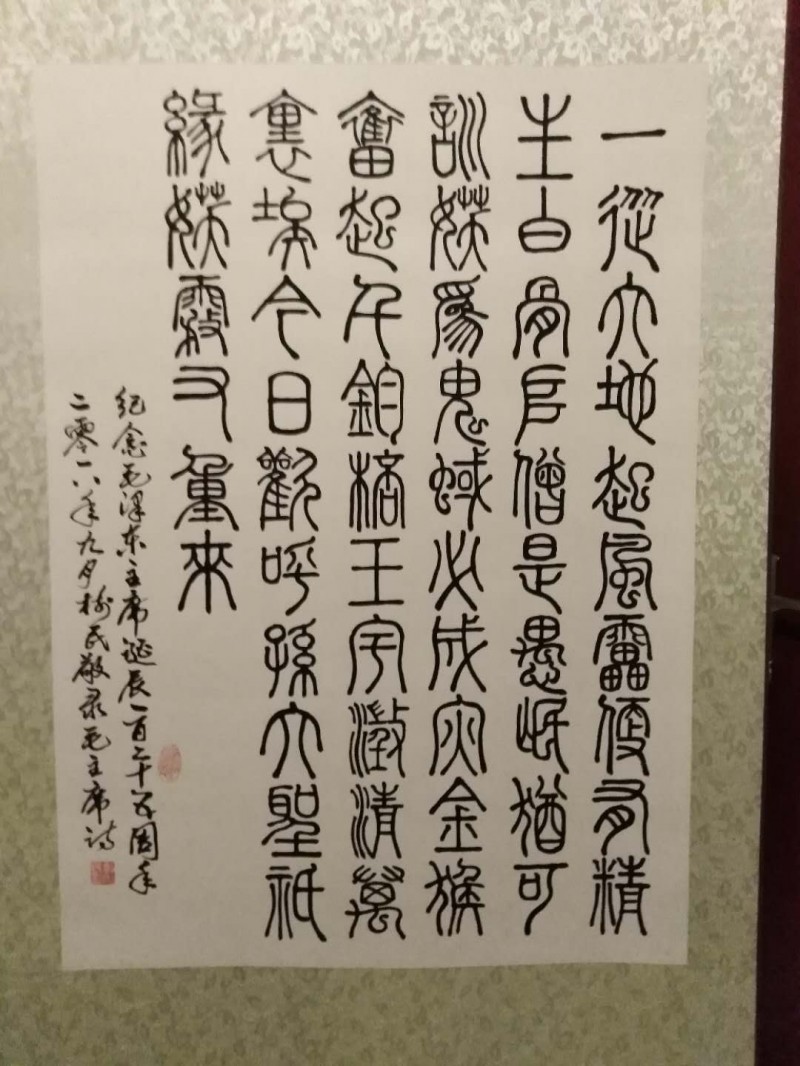 一從大地起風雷便有精
生白骨堆僧是愚氓猶可
訓妖爲鬼蜮必成灾金猴
奮起千鈞棓玉宇澂清萬
裏埃今日歡呼孫大聖祇
緣妖霧又重來
纪念毛泽东主席诞辰一百二十五周年
二零一八年九月树民敬录毛主席诗